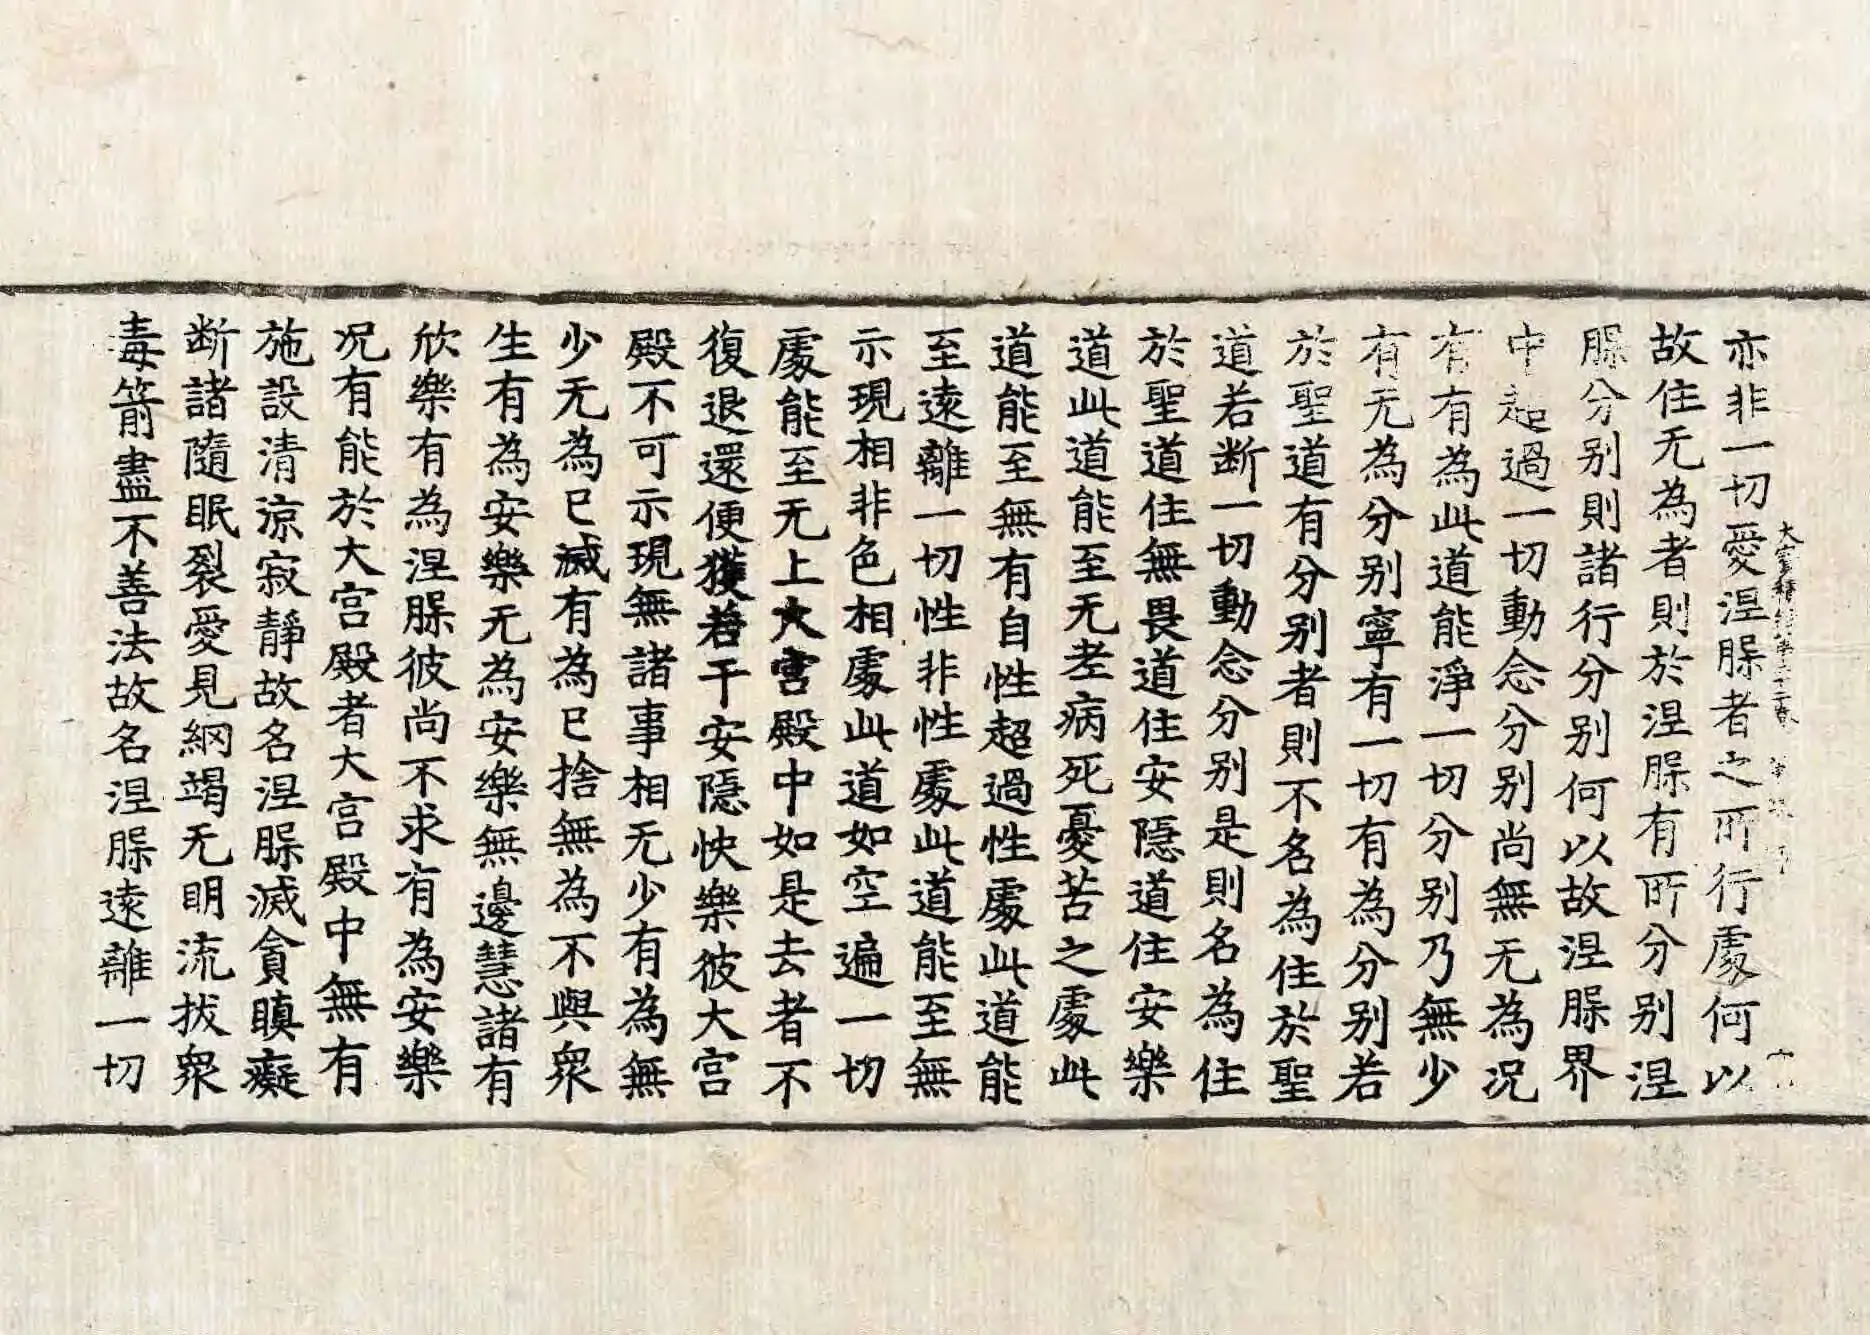 亦非一切愛涅槃者之所行處何以
故住无為者則於涅槃有所分别涅
槃分别則諸行分别何以故涅槃界
中超過一切動念分别尚無无為况
有有為此道能淨一切分别乃無少
有无為分别寧有一切有為分别若
於聖道有分别者則不名為住於聖
道若断一切動念分别是則名為住
於聖道住無畏道住安隱道住安樂
道此道能至无老病死憂苦之處此
道能至無有自性超過性處此道能
至逺離一切性非性處此道能至無
示現相非色相處此道如空遍一切
處能至无上大宫殿中如是去者不
復退還便獲若干安隱快樂彼大宫
殿不可示現無諸事相无少有為無
少无為已滅有為已捨無為不與衆
生有為安樂无為安樂無邊慧諸有
欣樂有為涅槃彼尚不求有為安樂
况有能於大宫殿者大宫殿中無有
施設清涼寂靜故名涅槃滅貪瞋癡
断諸隨眠裂愛見網竭无明流拔衆
毒箭盡不善法故名涅槃逺離一切